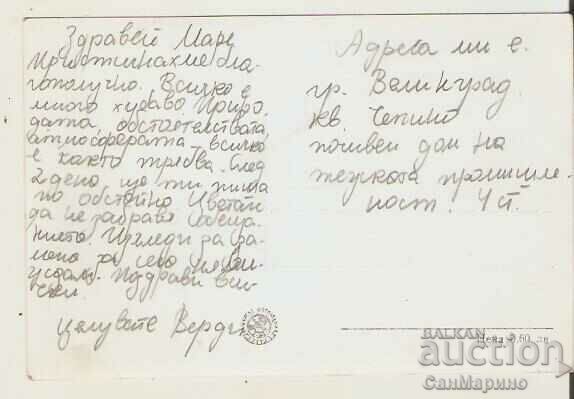 Здравей Маре
Пристигнахме бла-
гополучно. Всичко е
много хубаво Приро-
дата, обстоятелствата,
атмосферата - всичко
е както трябва. След
2 дена ще ти пиша
по обстойно Цветан
да не забрави обеща-
нието. Изгледи за за-
мяна за сега не ви-
ждам. Поздрави вси-
чки
целувате Верди
Адреса ми е.
гр. Велинград
кв. Чепино
почивен дом на
тежката промишле-
ност. 4 ст.
Цена 0,60 лв
BALKAN
auction
СанМарино